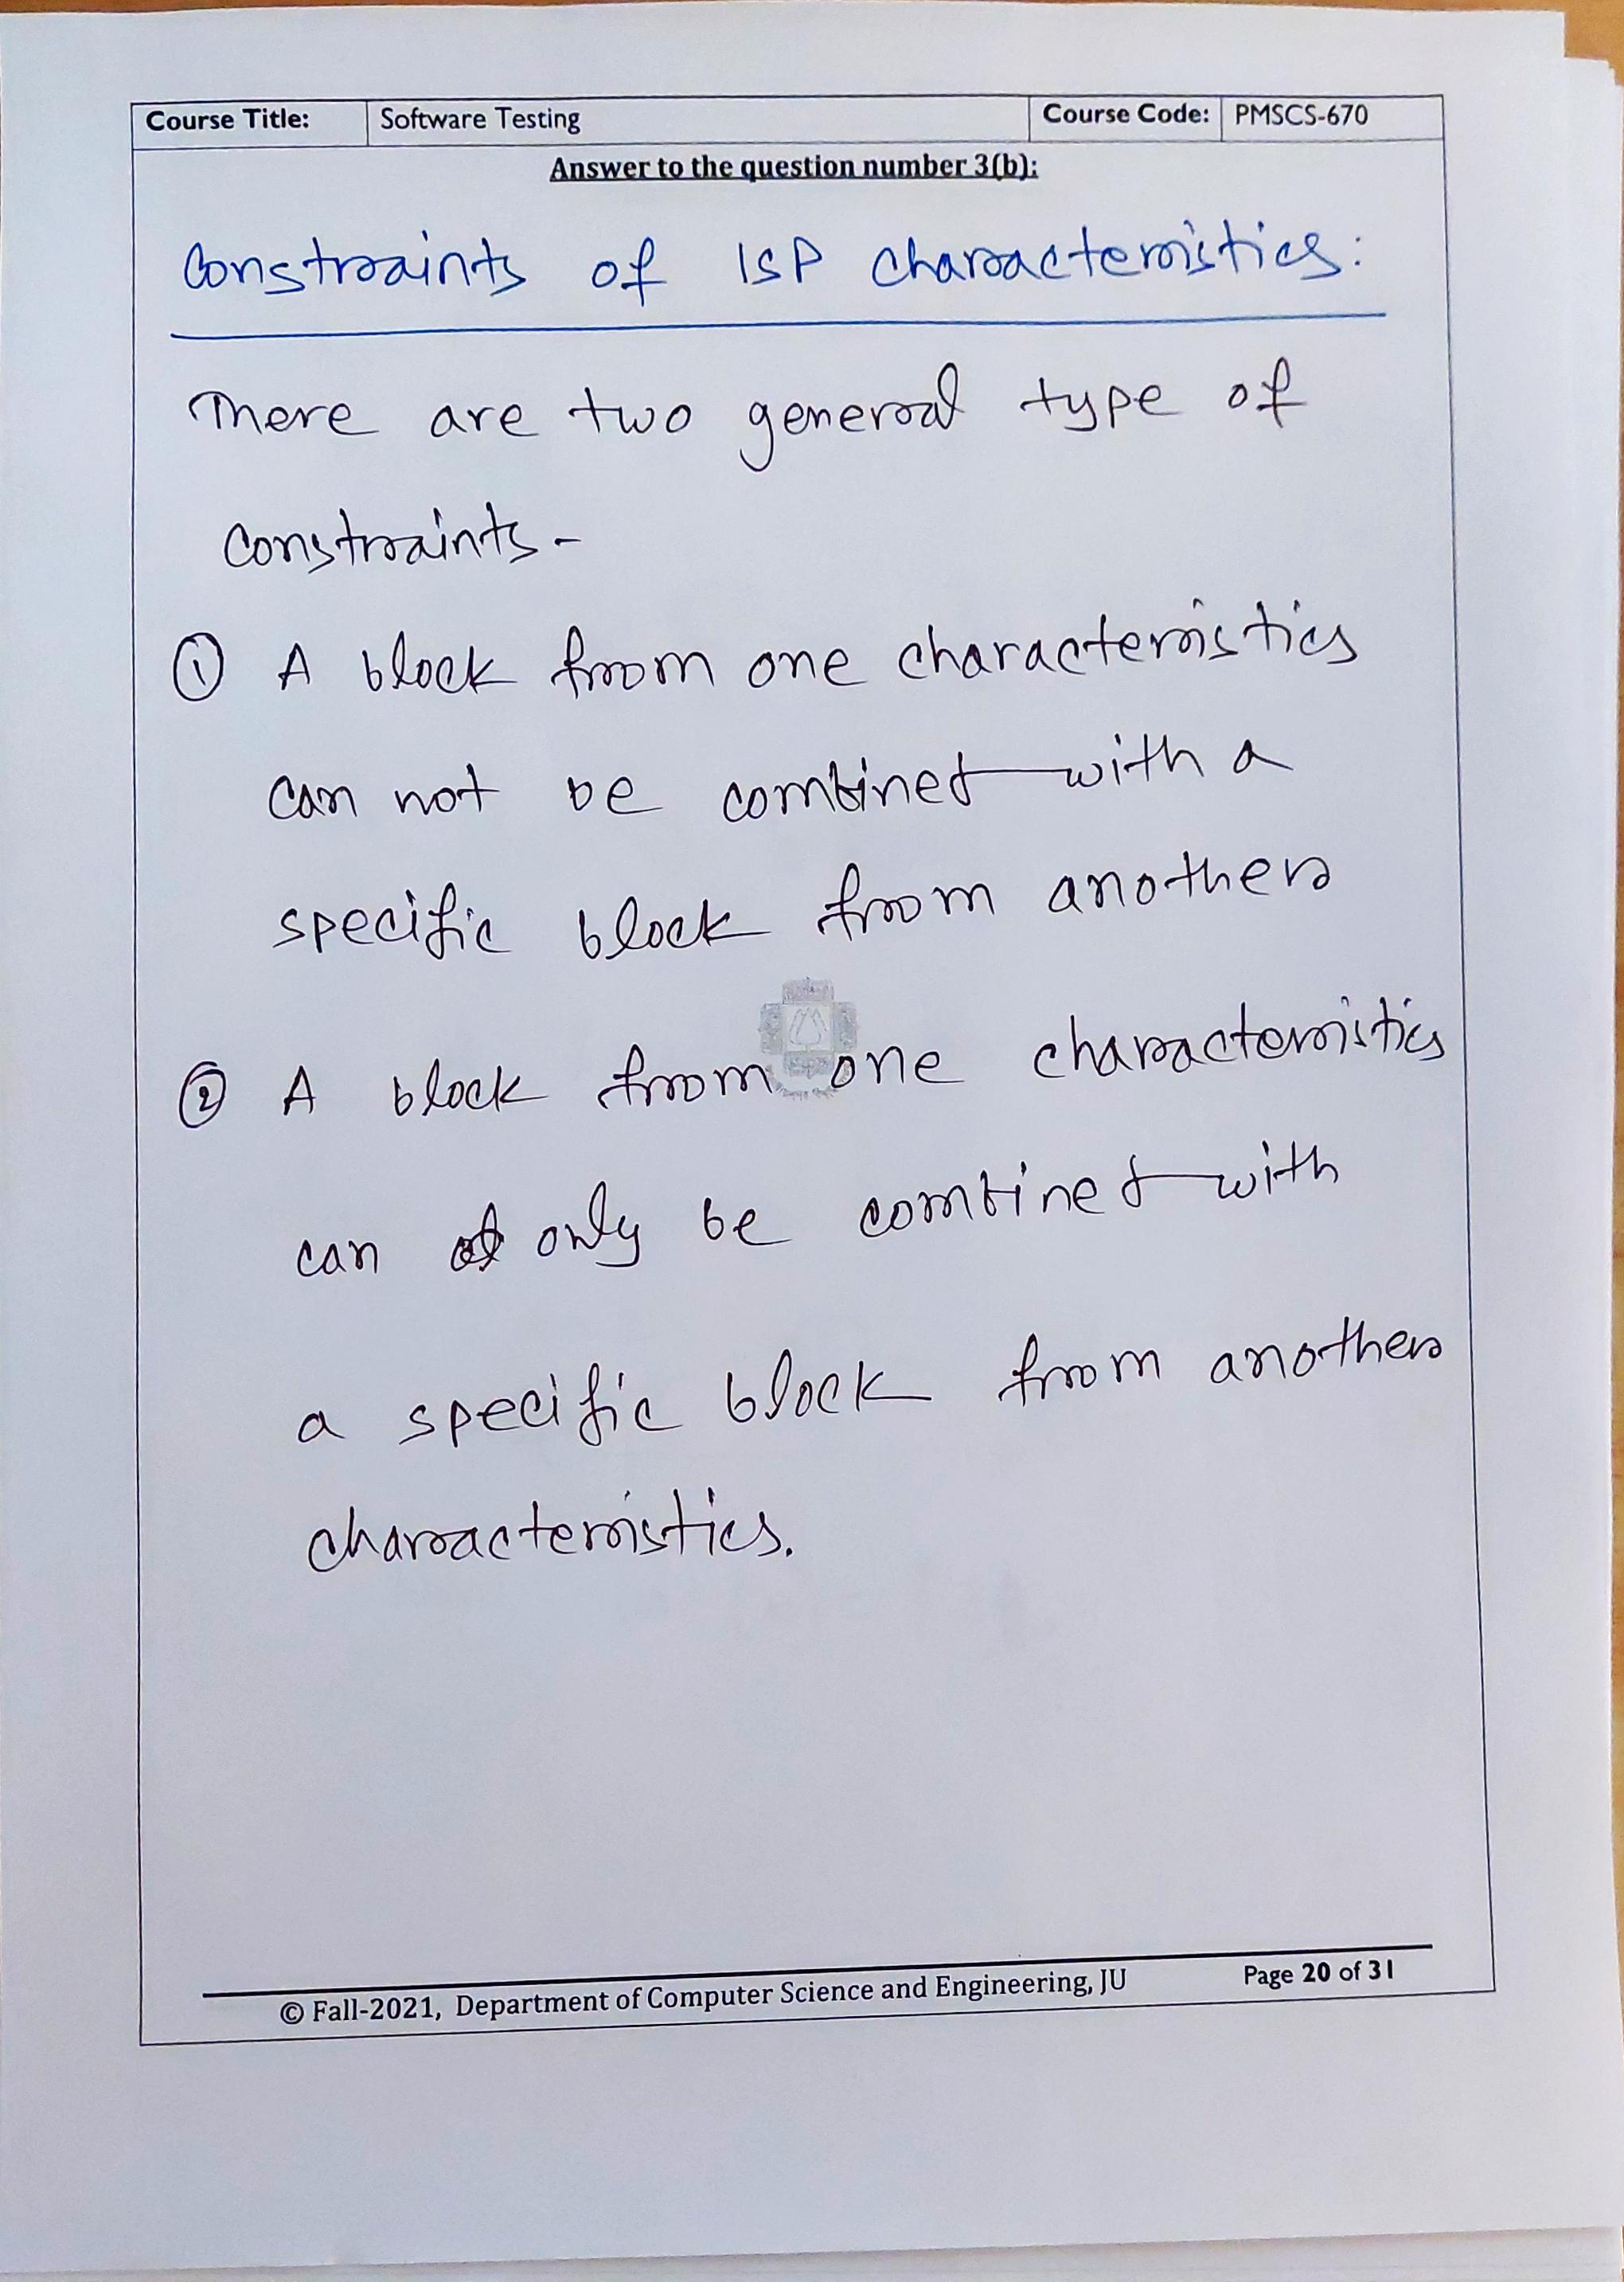 Course Title: Software Testing Course Code: PMSCS-670
Answer to the question number 3(b):
Constraints of ISP characteristics:
There are two general type of
constraints-
① A block from one characteristics
can not be combined with a
specific block from another
② A block from one characteristics
can only be combined with
a specific block from another
characteristics.
© Fall-2021, Department of Computer Science and Engineering, JU Page 20 of 31